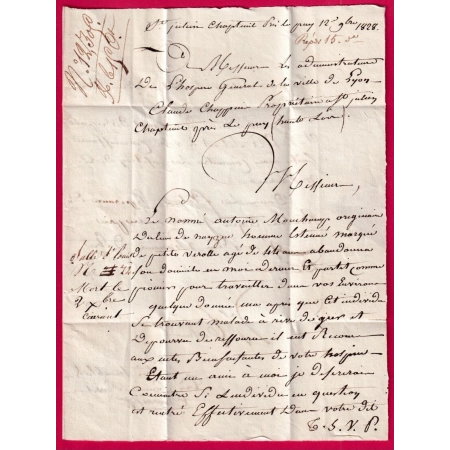 St julien Chapteuil Près le puy 12 9bre 1828.
Répdt 15.
N° 1230
A Messieurs les administrateurs
De l'hospice Général de la ville de Lyon
Claude Chappuis Propriétaire à St julien
Chapteuil près Le puy (haute Loire)
Messieurs,
Le nommé antoine Mouchamp originaire
Du lieu de hauteur marqué
de petite verolle agé de ans abandonna
son domicile en moi Dernier Et partit comme
pour travailler dans vos Environs
quelque donné ma apris que Cet individu
Se trouvant malade à rive de giers et
Depourvu de ressource il eut Recours
aux actes Bienfaisantes de votre hospice
Etant un ami à moi je desirerai
Connaitre Si Lindividu en question
est entré Effectivement Dans votre dit
T. S. V. P.
Salle St
N° 72
Mort le
9 Xbre
Courant